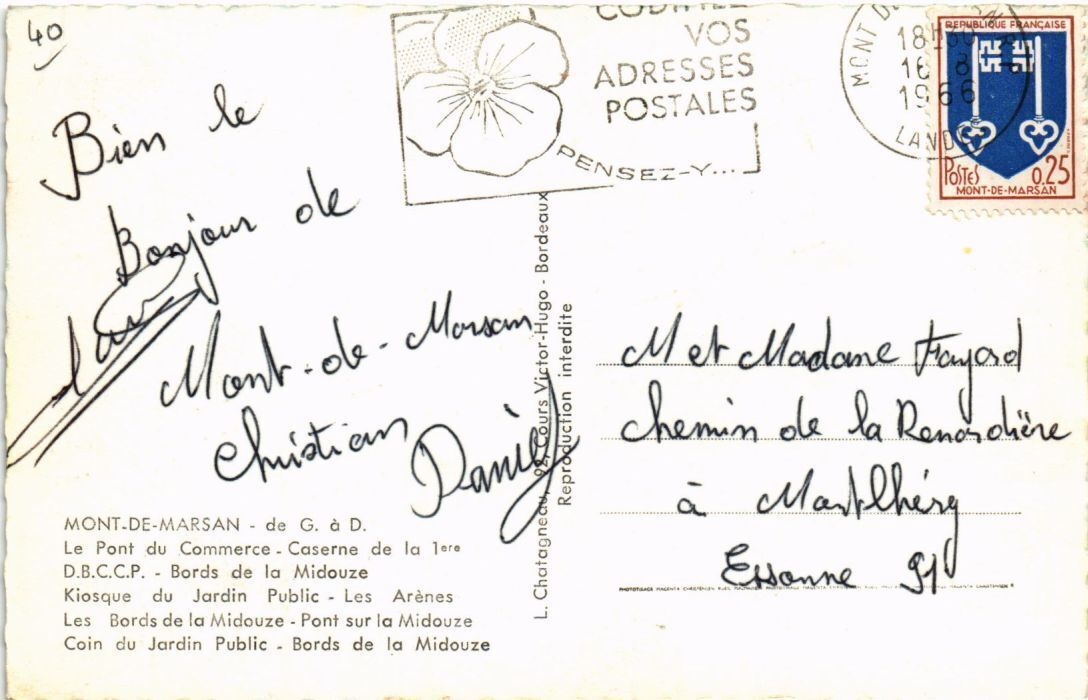 40
CODIFIEZ
VOS
ADRESSES
POSTALES
PENSEZ-Y...
MONT DE MARSAN
18H30
16 8
1966
LANDES
REPUBLIQUE FRANÇAISE
POSTES 0.25
MONT-DE-MARSAN
Bien le
Bonjour de
Mont-de-Marsan
Christian
Daniel
L. Chatagneau, 92, Cours Victor-Hugo - Bordeaux
Reproduction interdite
M et Madame Fayard
Chemin de la Renardière
à Montlhéry
Essonne 91
MONT-DE-MARSAN - de G. à D.
Le Pont du Commerce - Caserne de la 1ere
D.B.C.C.P. - Bords de la Midouze
Kiosque du Jardin Public - Les Arènes
Les Bords de la Midouze - Pont sur la Midouze
Coin du Jardin Public - Bords de la Midouze